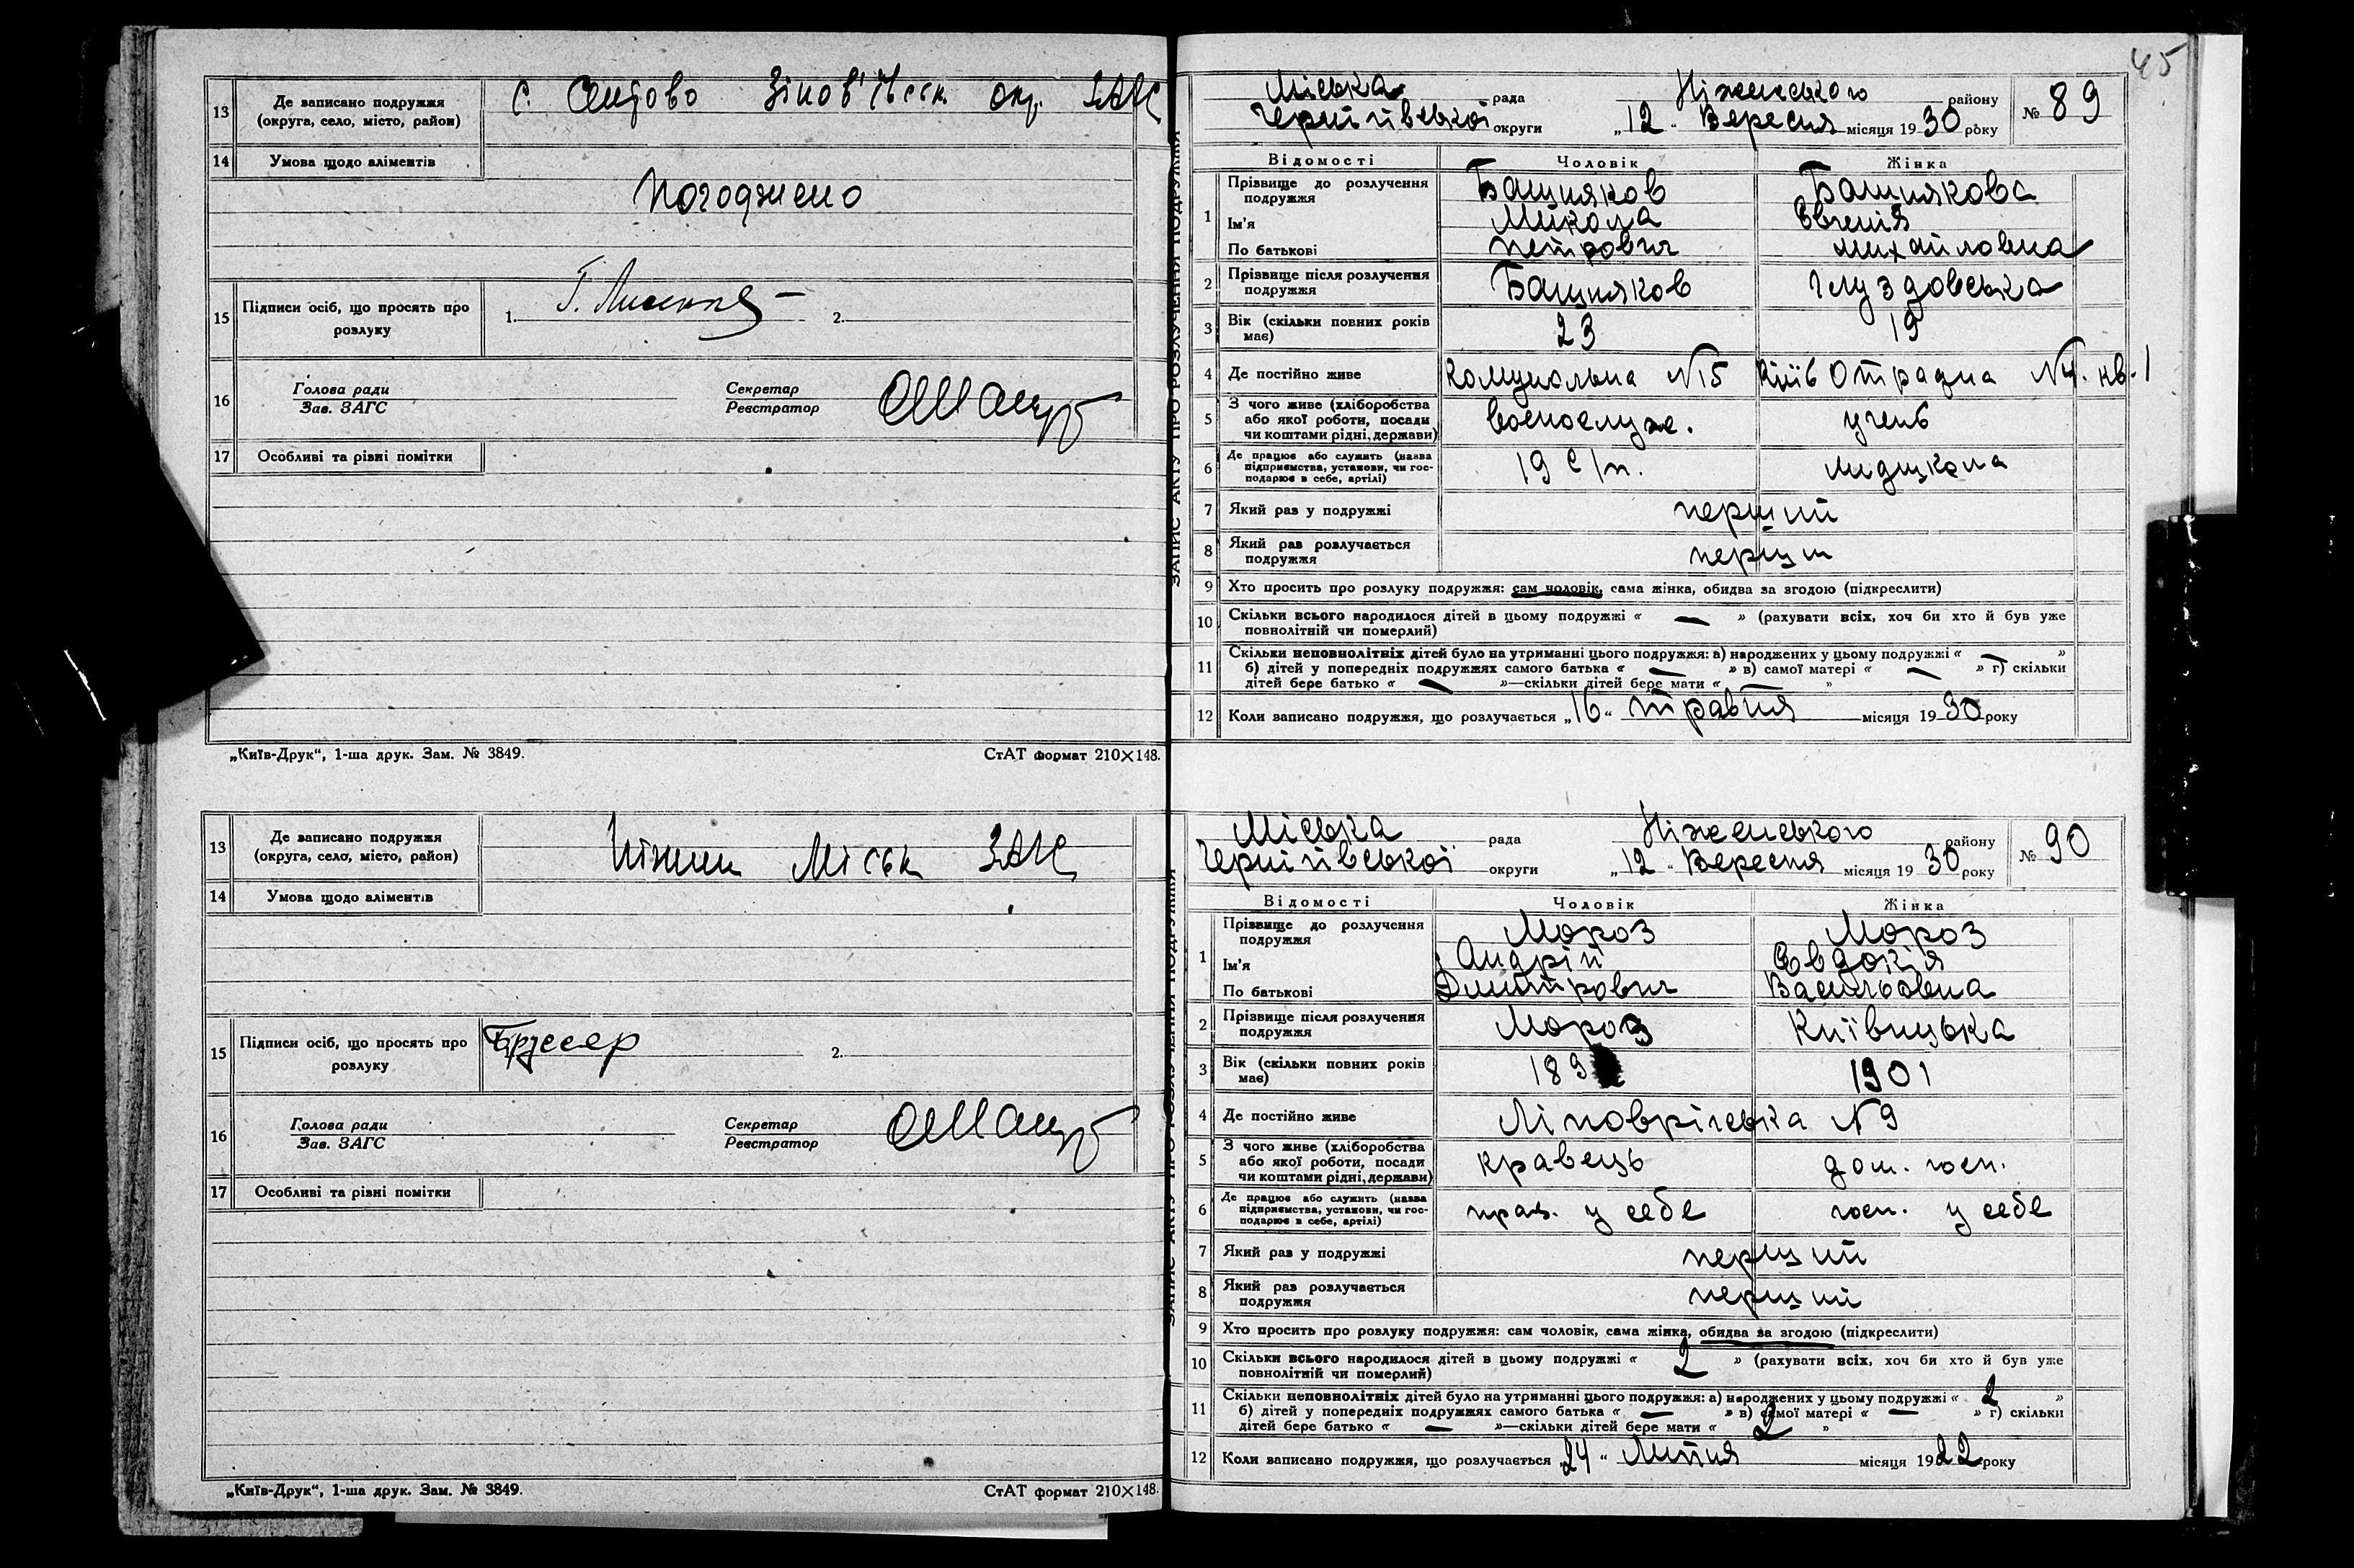 45
13 Де записано подружжя (округа, село, місто, район) с. Зінов'ївськ. окр. ЗАГС
14 Умова щодо аліментів
Погоджено
15 Підписи осіб, що просять про розлуку 1. 2.
16 Голова ради Зав. ЗАГС Секретар Реєстратор
17 Особливі та різні помітки
„Київ-Друк“, 1-ша друк. Зам. № 3849. СтАТ формат 210×148.
13 Де записано подружжя (округа, село, місто, район) Ніжин Міськ ЗАГС
14 Умова щодо аліментів
15 Підписи осіб, що просять про розлуку 2.
16 Голова ради Зав. ЗАГС Секретар Реєстратор
17 Особливі та різні помітки
„Київ-Друк“, 1-ша друк. Зам. № 3849. СтАТ формат 210×148.
ЗАПИС АКТУ ПРО РОЗЛУЧЕННЯ ПОДРУЖЖЯ
Міська рада Ніженського району № 89
Чернігівської округи „12“ Вересня місяця 1930 року
Відомості Чоловік Жінка
1 Прізвище до розлучення подружжя Башняков Башнякова
Ім'я Микола Євгенія
По батькові Петрович Михайловна
2 Прізвище після розлучення подружжя Башняков Глуздовська
3 Вік (скільки повних років має) 23 19
4 Де постійно живе Комунальна №15 Київ Отрадна кв. 1
5 З чого живе (хліборобства або якої роботи, посади чи коштами рідні, держави) военослуж. учень
6 Де працює або служить (назва підприємства, установи, чи господарює в себе, артілі) 19 с/п. медшкола
7 Який раз у подружжі перший
8 Який раз розлучається подружжя перший
9 Хто просить про розлуку подружжя: сам чоловік, сама жінка, обидва за згодою (підкреслити)
10 Скільки всього народилося дітей в цьому подружжі « — » (рахувати всіх, хоч би хто й був уже
повнолітній чи померлий)
11 Скільки неповнолітніх дітей було на утриманні цього подружжя: а) народжених у цьому подружжі « — »
б) дітей у попередніх подружжях самого батька « — » в) самої матері « — » г) скільки
дітей бере батько « — »—скільки дітей бере мати « — »
12 Коли записано подружжя, що розлучається „16“ травня місяця 1930 року
Міська рада Ніженського району № 90
Чернігівської округи „12“ Вересня місяця 1930 року
Відомості Чоловік Жінка
1 Прізвище до розлучення подружжя Мороз Мороз
Ім'я Андрій Євдокія
По батькові Дмитрович Васильовна
2 Прізвище після розлучення подружжя Мороз Київицька
3 Вік (скільки повних років має) 189 1901
4 Де постійно живе Ліповрічська №9
5 З чого живе (хліборобства або якої роботи, посади чи коштами рідні, держави) кравець дом. госп.
6 Де працює або служить (назва підприємства, установи, чи господарює в себе, артілі) прац. у себе госп. у себе
7 Який раз у подружжі перший
8 Який раз розлучається подружжя перший
9 Хто просить про розлуку подружжя: сам чоловік, сама жінка, обидва за згодою (підкреслити)
10 Скільки всього народилося дітей в цьому подружжі « 2 » (рахувати всіх, хоч би хто й був уже
повнолітній чи померлий)
11 Скільки неповнолітніх дітей було на утриманні цього подружжя: а) народжених у цьому подружжі « 2 »
б) дітей у попередніх подружжях самого батька « — » в) самої матері « — » г) скільки
дітей бере батько « — »—скільки дітей бере мати « 2 »
12 Коли записано подружжя, що розлучається „24“ Липня місяця 1922 року